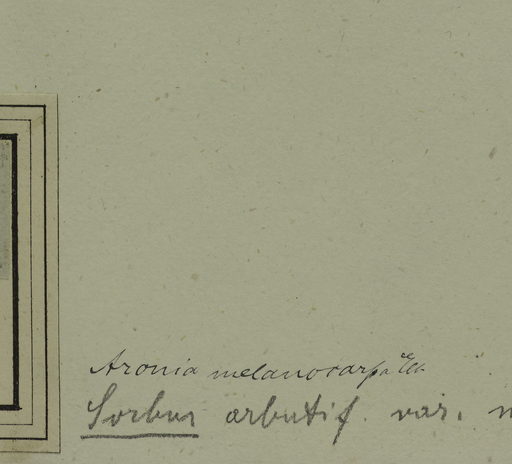 Aronia melanocarpa Ell.
Sorbus arbutif. var.